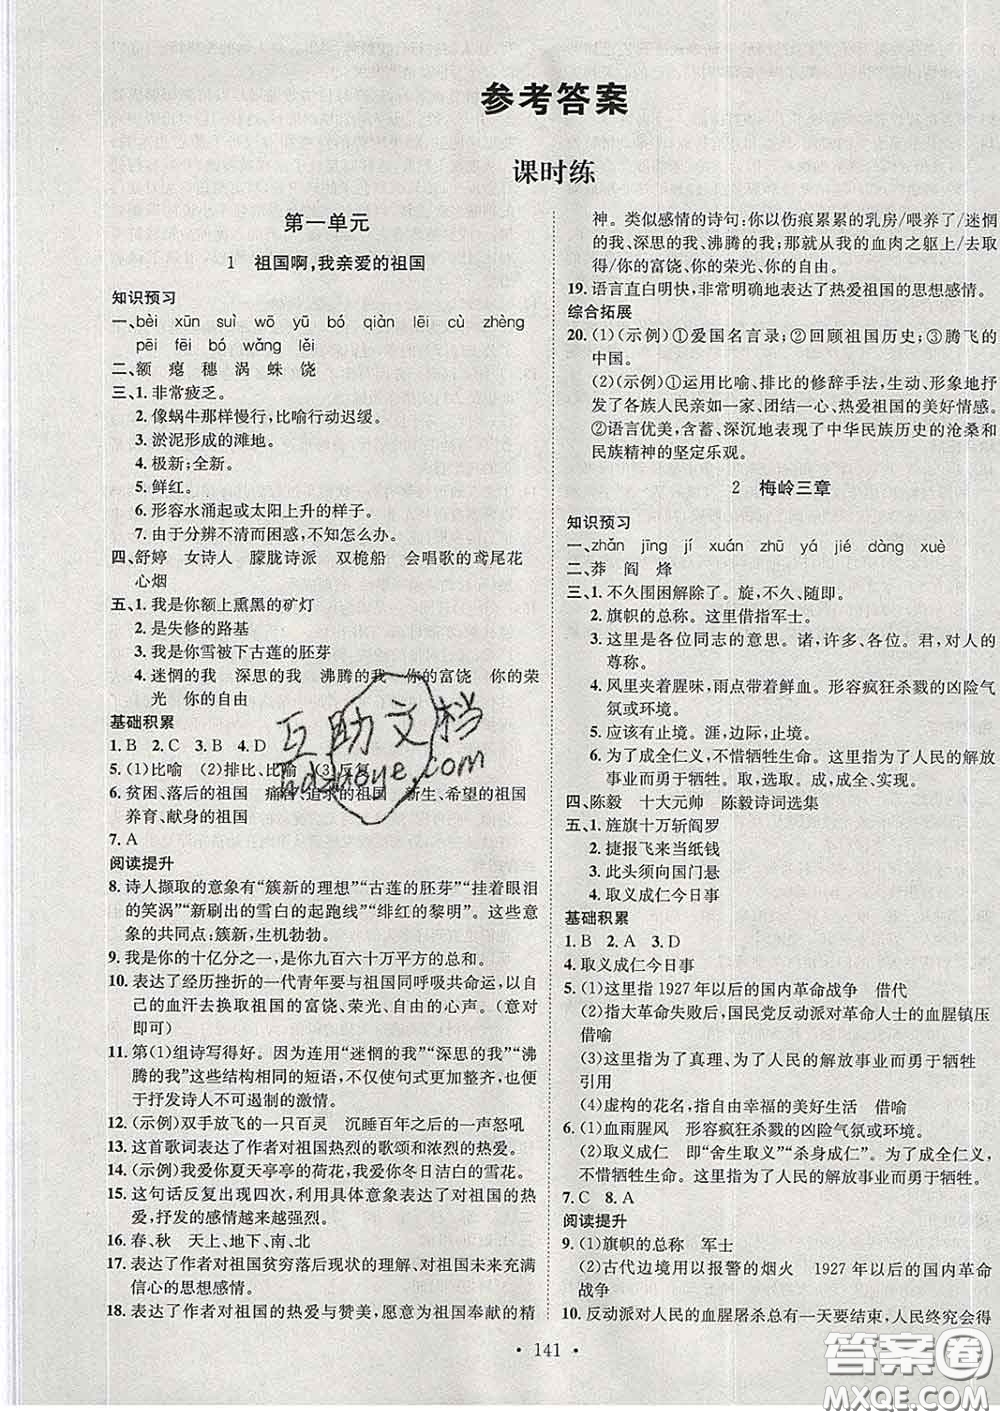 参考答案
课时练
第一单元
1 祖国啊,我亲爱的祖国
知识预习
一、bèi xūn suì wō yū bó qiàn lēi cù zhèng
pēi fēi bó wǎng lěi
二、额 瘪 穗 涡 蛛 饶
三、1. 非常疲乏。
2. 像蜗牛那样慢行,比喻行动迟缓。
3. 淤泥形成的滩地。
4. 极新;全新。
5. 鲜红。
6. 形容水涌起或太阳上升的样子。
7. 由于分辨不清而困惑,不知怎么办。
四、舒婷 女诗人 朦胧诗派 双桅船 会唱歌的鸢尾花
心烟
五、1. 我是你额上熏黑的矿灯
2. 是失修的路基
3. 我是你雪被下古莲的胚芽
4. 迷惘的我 深思的我 沸腾的我 你的富饶 你的荣
光 你的自由
基础积累
1. B 2. C 3. B 4. D
5. (1)比喻 (2)排比、比喻 (3)反复
6. 贫困、落后的祖国 痛苦、追求的祖国 新生、希望的祖国
养育、献身的祖国
7. A
阅读提升
8. 诗人撷取的意象有“簇新的理想”“古莲的胚芽”“挂着眼泪
的笑涡”“新刷出的雪白的起跑线”“绯红的黎明”。这些意
象的共同点:簇新,生机勃勃。
9. 我是你的十亿分之一,是你九百六十万平方的总和。
10. 表达了经历挫折的一代青年要与祖国同呼吸共命运,以自
己的血汗去换取祖国的富饶、荣光、自由的心声。(意对
即可)
11. 第(1)组诗写得好。因为连用“迷惘的我”“深思的我”“沸
腾的我”这些结构相同的短语,不仅使句式更加整齐,而且
便于抒发诗人不可遏制的激情。
12. (示例)双手放飞的一只百灵 沉睡百年之后的一声怒吼
13. 这首歌词表达了作者对祖国热烈的歌颂和浓烈的热爱。
14. (示例)我爱你夏天亭亭的荷花,我爱你冬日洁白的雪花。
15. 这句话反复出现四次,利用具体意象表达了对祖国的热
爱,抒发的感情越来越强烈。
16. 春、秋 天上、地下、南、北
17. 表达了作者对祖国贫穷落后现状的理解、对祖国未来充满
信心的思想感情。
18. 表达了作者对祖国的热爱与赞美,愿意为祖国奉献的精
神。类似感情的诗句:你以伤痕累累的乳房/喂养了/迷惘
的我、深思的我、沸腾的我;那就从我的血肉之躯上/去取
得/你的富饶、你的荣光、你的自由。
19. 语言直白明快,非常明确地表达了热爱祖国的思想感情。
综合拓展
20. (1)(示例)①爱国名言录;②回顾祖国历史;③腾飞的
中国。
(2)(示例)①运用比喻、排比的修辞手法,生动、形象地抒
发了各族人民亲如一家、团结一心、热爱祖国的美好情感。
②语言优美,含蓄、深沉地表现了中华民族历史的沧桑和
民族精神的坚定乐观。
2 梅岭三章
知识预习
一、zhǎn jīng jí xuán zhū yá jié dàng xuè
二、莽 阎 烽
三、1. 不久围困解除了。旋,不久、随即。
2. 旗帜的总称。这里借指军士。
3. 这里是各位同志的意思。诸,许多、各位。君,对人的
尊称。
4. 风里夹着腥味,雨点带着鲜血。形容疯狂杀戮的凶险气
氛或环境。
5. 应该有止境。涯,边际,止境。
6. 为了成全仁义,不惜牺牲生命。这里是为了人民的解放
事业而勇于牺牲。取,选取。成,成全、实现。
四、陈毅 十大元帅 陈毅诗词选集
五、1. 旌旗十万斩阎罗
2. 捷报飞来当纸钱
3. 此头须向国门悬
4. 取义成仁今日事
基础积累
1. B 2. A 3. D
4. 取义成仁今日事
5. (1)这里指 1927 年以后的国内革命战争 借代
(2)指大革命失败后,国民党反动派对革命人士的血腥镇压
借喻
(3)这里指为了真理、为了人民的解放事业而勇于牺牲
引用
(4)虚构的花名,指自由幸福的美好生活 借喻
6. (1)血雨腥风 形容疯狂杀戮的凶险气氛或环境。
(2)取义成仁 即“舍生取义”“杀身成仁”。为了成全仁义,
不惜牺牲生命。这里是为了人民的解放事业而勇于牺牲。
7. C 8. A
阅读提升
9. (1)旗帜的总称 军士
(2)古代边境用以报警的烟火 1927 年以后的国内革命
战争
10. 反动派对人民的血腥屠杀总有一天要结束,人民终究会得
• 141 •
互助文档
hdzuoye.com
答案圈
MXQE.COM